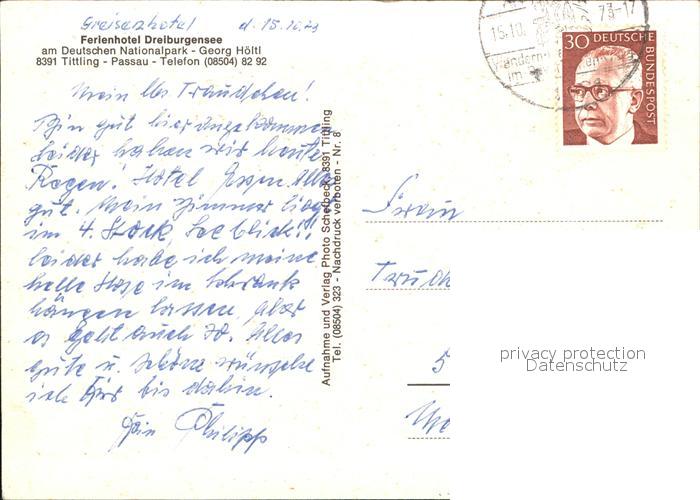 Greisenhotel d. 15.10.73
Ferienhotel Dreiburgensee
am Deutschen Nationalpark - Georg Höltl
8391 Tittling - Passau - Telefon (08504) 82 92
Mein lbs Traudchen!
Bin gut hier angekommen
leider haben wir heute
Regen! Hotel, Essen alles
gut. Mein Zimmer liegt
im 4. Stock, Seeblick!!
leider habe ich meine
helle Hose im Schrank
hängen lassen, aber
es geht auch so. Alles
gute u. schöne wünsche
ich Dir bis dahin.
Dein Philipp
Aufnahme und Verlag Photo Schefbeck, 8391 Tittling
Tel. (08504) 323 - Nachdruck verboten - Nr. 8
15.10.
73-17
Wandern
im
30 DEUTSCHE
BUNDESPOST
Frau
Trud
5
privacy protection
Datenschutz